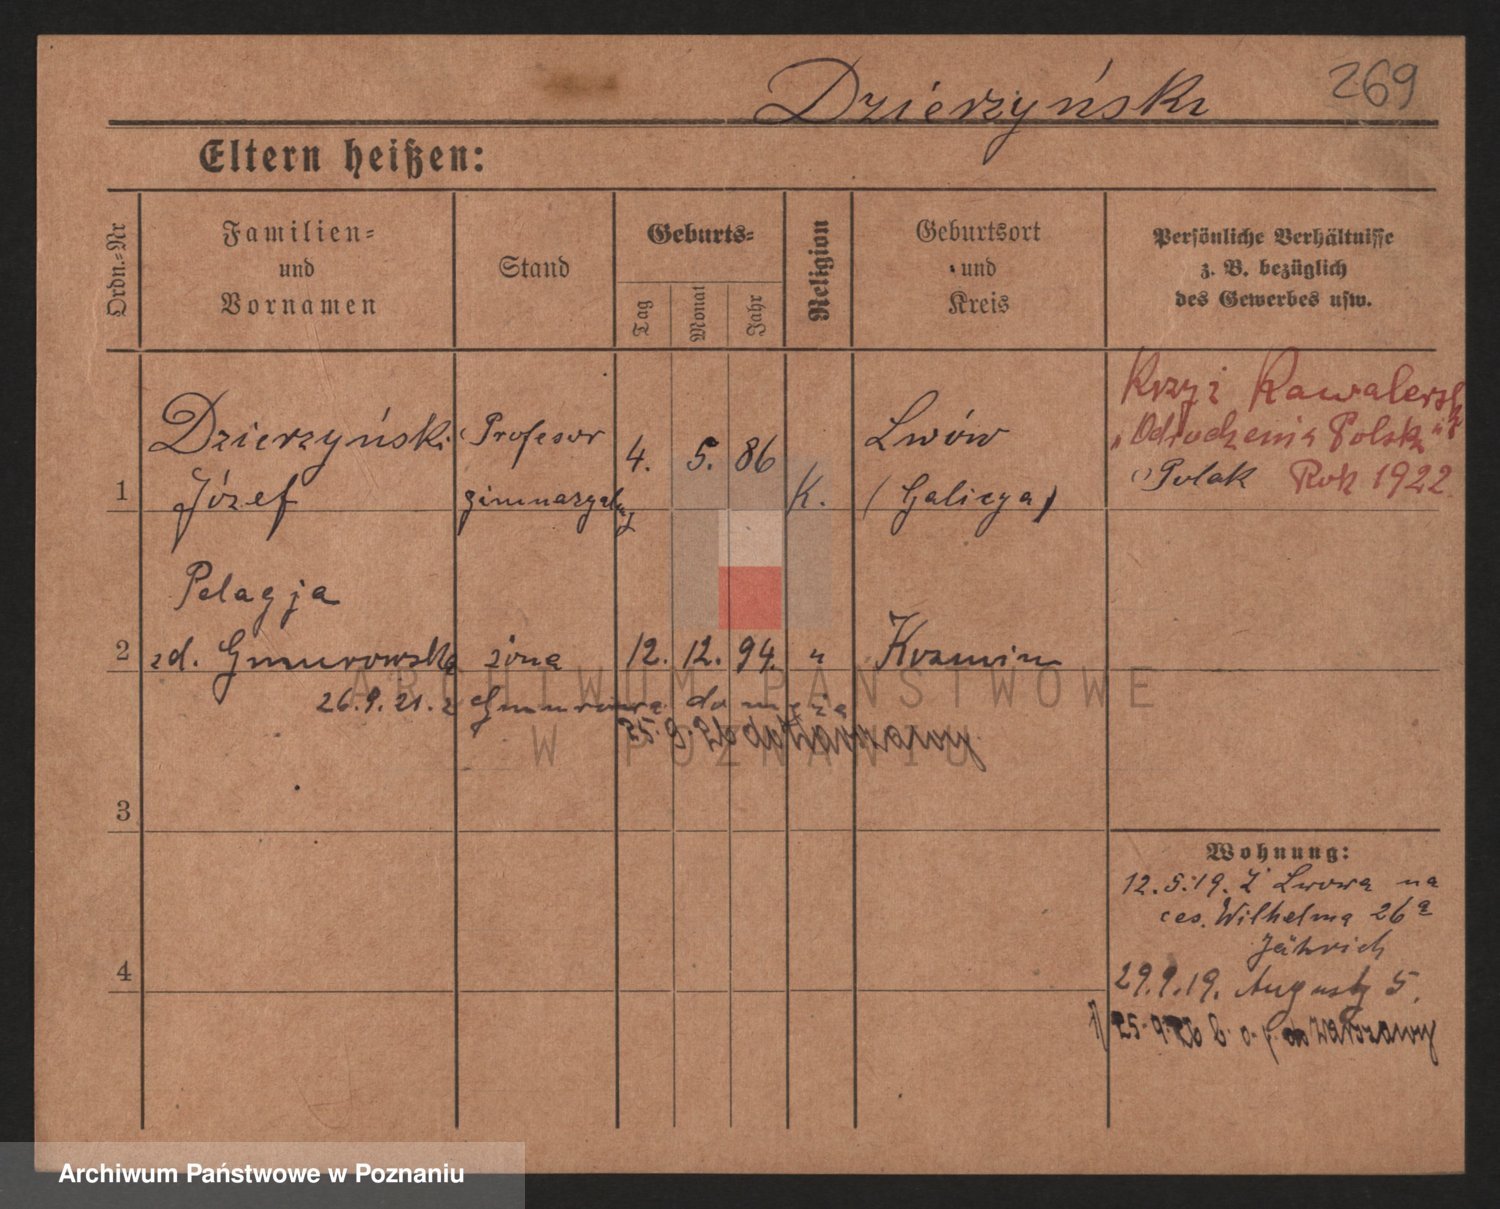 269
Dzierzyński
Eltern heißen:
Ordn.-Nr
Familien-
und
Vornamen
Stand
Geburts-
Tag
Monat
Jahr
Religion
Geburtsort
und
Kreis
Persönliche Verhältnisse
z. B. bezüglich
des Gewerbes usw.
1
Dzierzyński
Józef
Profesor
gimnazyalny
4. 5. 86
K.
Lwów
(Galicya)
Krzyż Kawalersk
„Odrodzenia Polski"
Polak Rok 1922
2
Pelagja
zd. Gmurowska
żona
12. 12. 94.
"
Kozmin
26.9.21. z Gmurowa do męża
25. 9. do Warszawy
3
4
Wohnung:
12.5.19. Z Lwowa na
ces. Wilhelma 26a
Jähnich
29.9.19. Augusty 5.
25.9.26 do Warszawy
ARCHIWUM PAŃSTWOWE
W POZNANIU
Archiwum Państwowe w Poznaniu